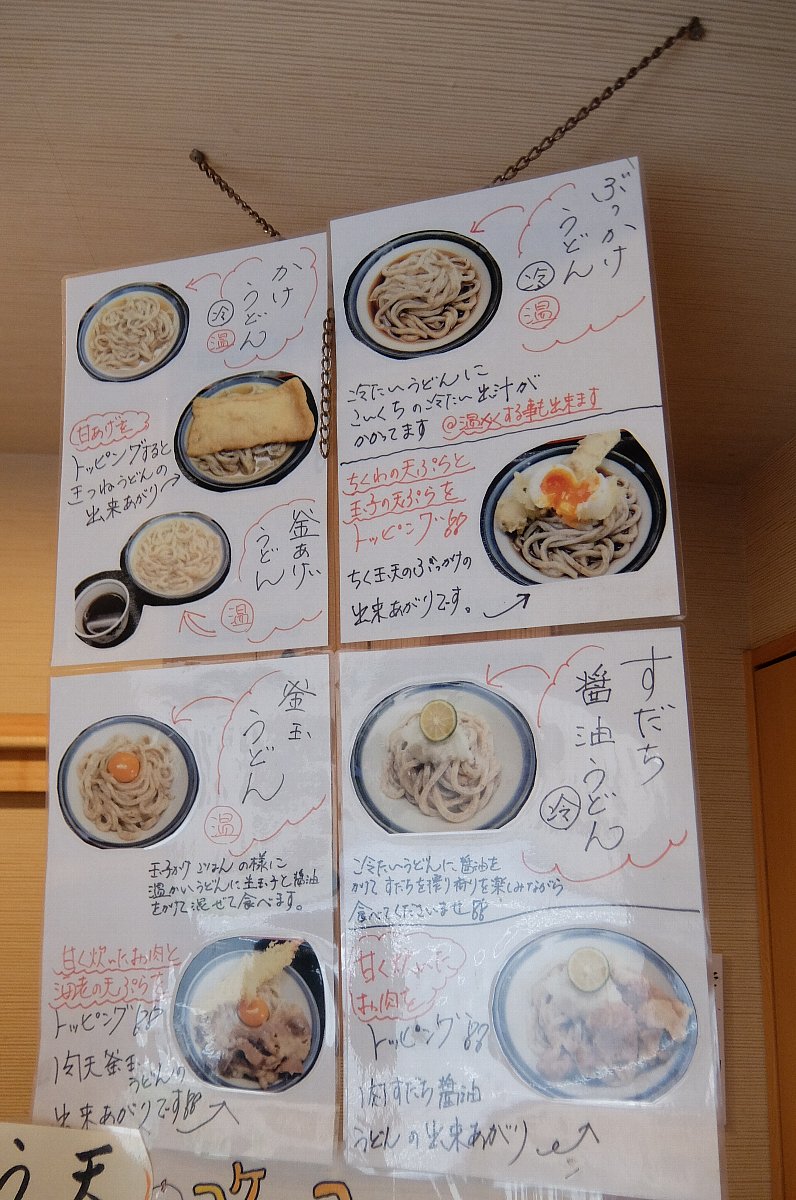 かけ
うどん
冷
温
甘あげを
トッピングすると
きつねうどんの
出来あがり
釜あげ
うどん
温
ぶっかけ
うどん
冷
温
冷たいうどんに
こいくちの冷たい出汁が
かかってます
@温かくする事も出来ます
ちくわの天ぷらと
玉子の天ぷらを
トッピング
ちく玉天のぶっかけの
出来あがりです。
釜玉
うどん
温
玉子かけごはんの様に
温かいうどんに生玉子と醤油
をかけて混ぜて食べます。
甘く炊いたお肉と
海老の天ぷらを
トッピング
肉天釜玉
うどんの
出来あがりです
すだち
醤油うどん
冷
冷たいうどんに醤油を
かけてすだちを搾り香りを楽しみながら
食べてくださいませ
甘く炊いた
お肉を
トッピング
肉すだち醤油
うどんの出来あがり
う天
コケ